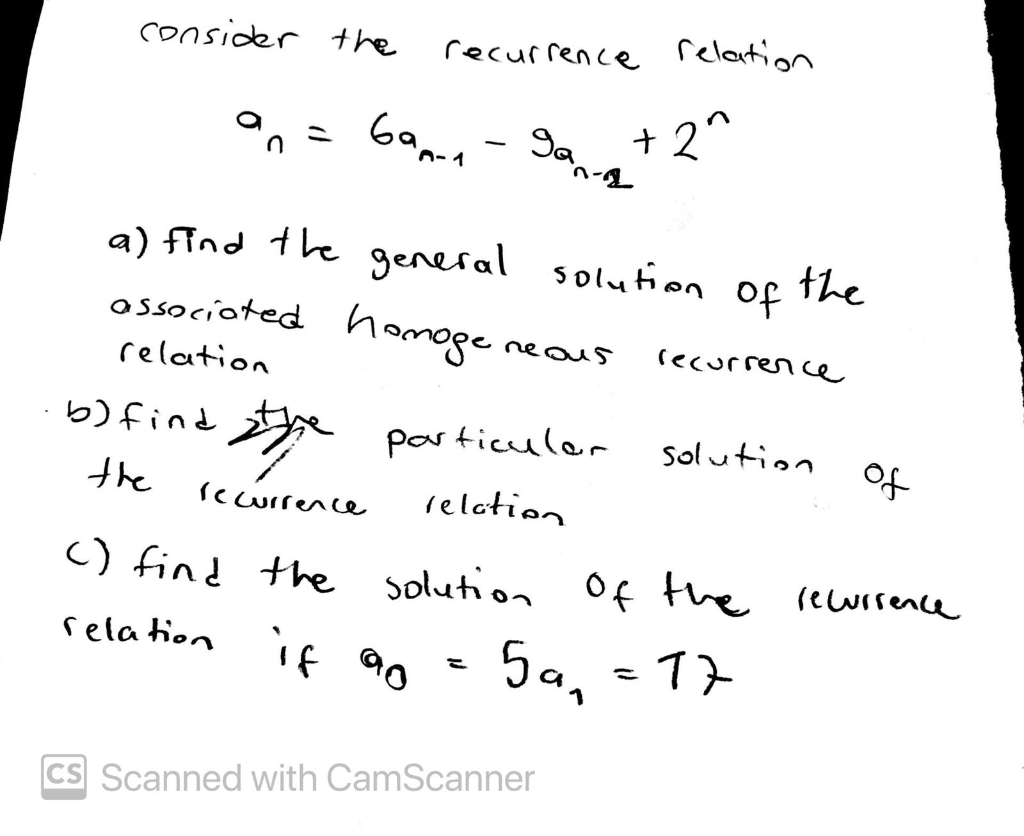 consider the recurrence relation
aₙ = 6aₙ₋₁ - 9aₙ₋₂ + 2ⁿ
a) find the general solution of the
associated homogeneous recurrence
relation
b) find particular solution of
the recurrence relation
c) find the solution of the recurrence
relation if a₀ = 5a₁ = 17
CS Scanned with CamScanner